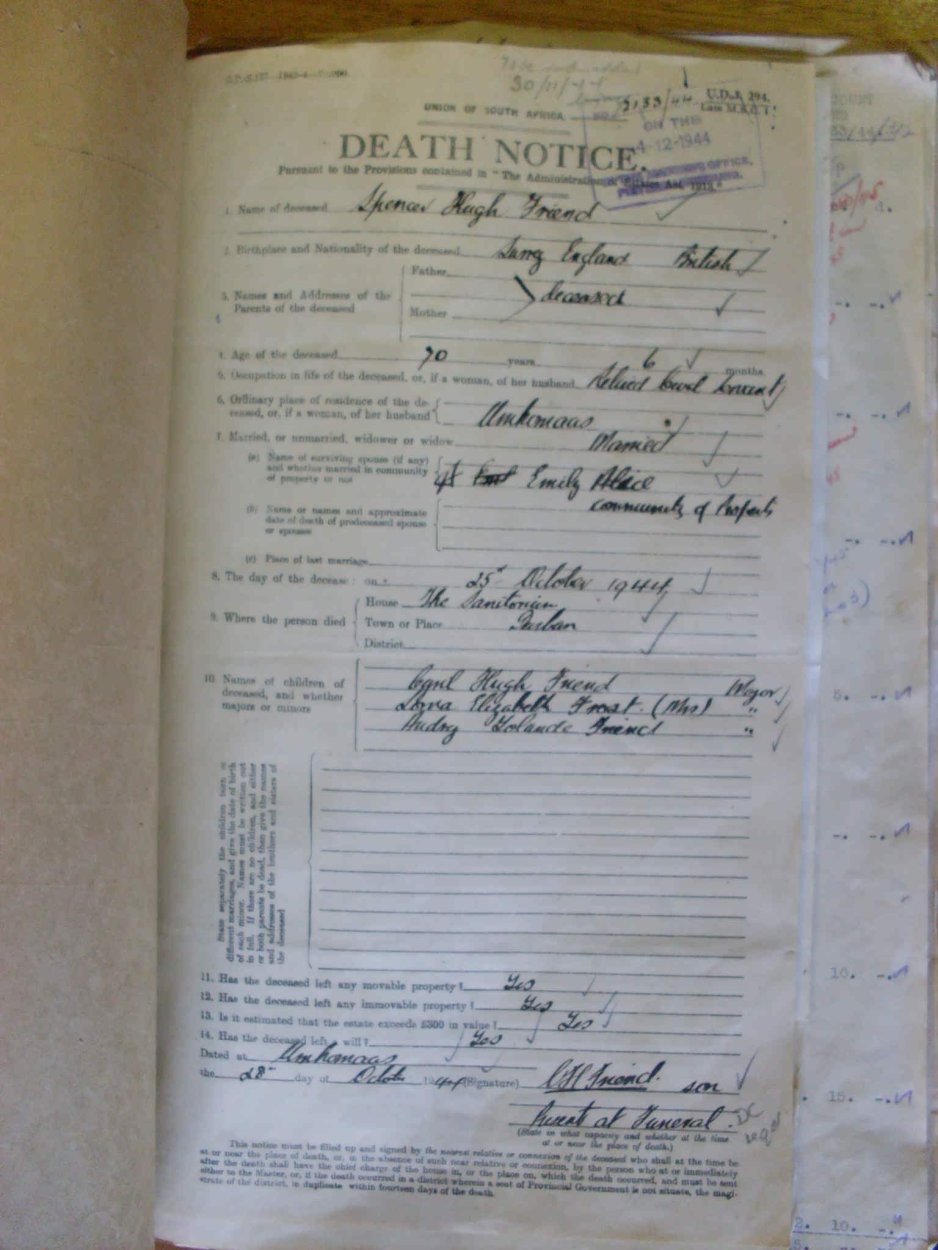 30/11/44
U.D.J. 294.
2133/44
UNION OF SOUTH AFRICA.
ON THE
4-12-1944
DEATH NOTICE.
Pursuant to the Provisions contained in "The Administration of Estates Act, 1913."
1. Name of deceased Spencer Hugh Friend
2. Birthplace and Nationality of the deceased Surrey England British
3. Names and Addresses of the Parents of the deceased
Father
deceased
Mother
4. Age of the deceased 70 years 6 months
5. Occupation in life of the deceased, or, if a woman, of her husband Retired Civil Servant
6. Ordinary place of residence of the de-
ceased, or, if a woman, of her husband Umkomaas
7. Married, or unmarried, widower or widow Married
(a) Name of surviving spouse (if any)
and whether married in community
of property or not
Emily Alice
community of Property
(b) Name or names and approximate
date of death of predeceased spouse
or spouses
(c) Place of last marriage
8. The day of the decease: on 25t October 1944
9. Where the person died
House The Sanitorium
Town or Place Durban
District
10. Names of children of
deceased, and whether
majors or minors
Cyril Hugh Friend Major
Lorna Elizabeth Frost. (Mrs) "
Audrey Yolande Friend "
State separately the children born of
different marriages, and give the date of birth
of each minor. Names must be written out
in full. If there are no children, and either
or both parents be dead, then give the names
and addresses of the brothers and sisters of
the deceased
11. Has the deceased left any movable property? Yes
12. Has the deceased left any immovable property? Yes
13. Is it estimated that the estate exceeds £300 in value? Yes
14. Has the deceased left a will? Yes
Dated at Umkomaas
the 28th day of October 1944 (Signature) C H Friend. son
Present at Funeral.
(State in what capacity and whether at the time
at or near the place of death.)
This notice must be filled up and signed by the nearest relative or connexion of the deceased who shall at the time be
at or near the place of death, or, in the absence of such near relative or connexion, by the person who at or immediately
after the death shall have the chief charge of the house in, or the place on, which the death occurred, and must be sent
either to the Master, or, if the death occurred in a district wherein a seat of Provincial Government is not situate, the magi-
strate of the district, in duplicate within fourteen days of the death.
5.
10.
15.
2. 10.
5.